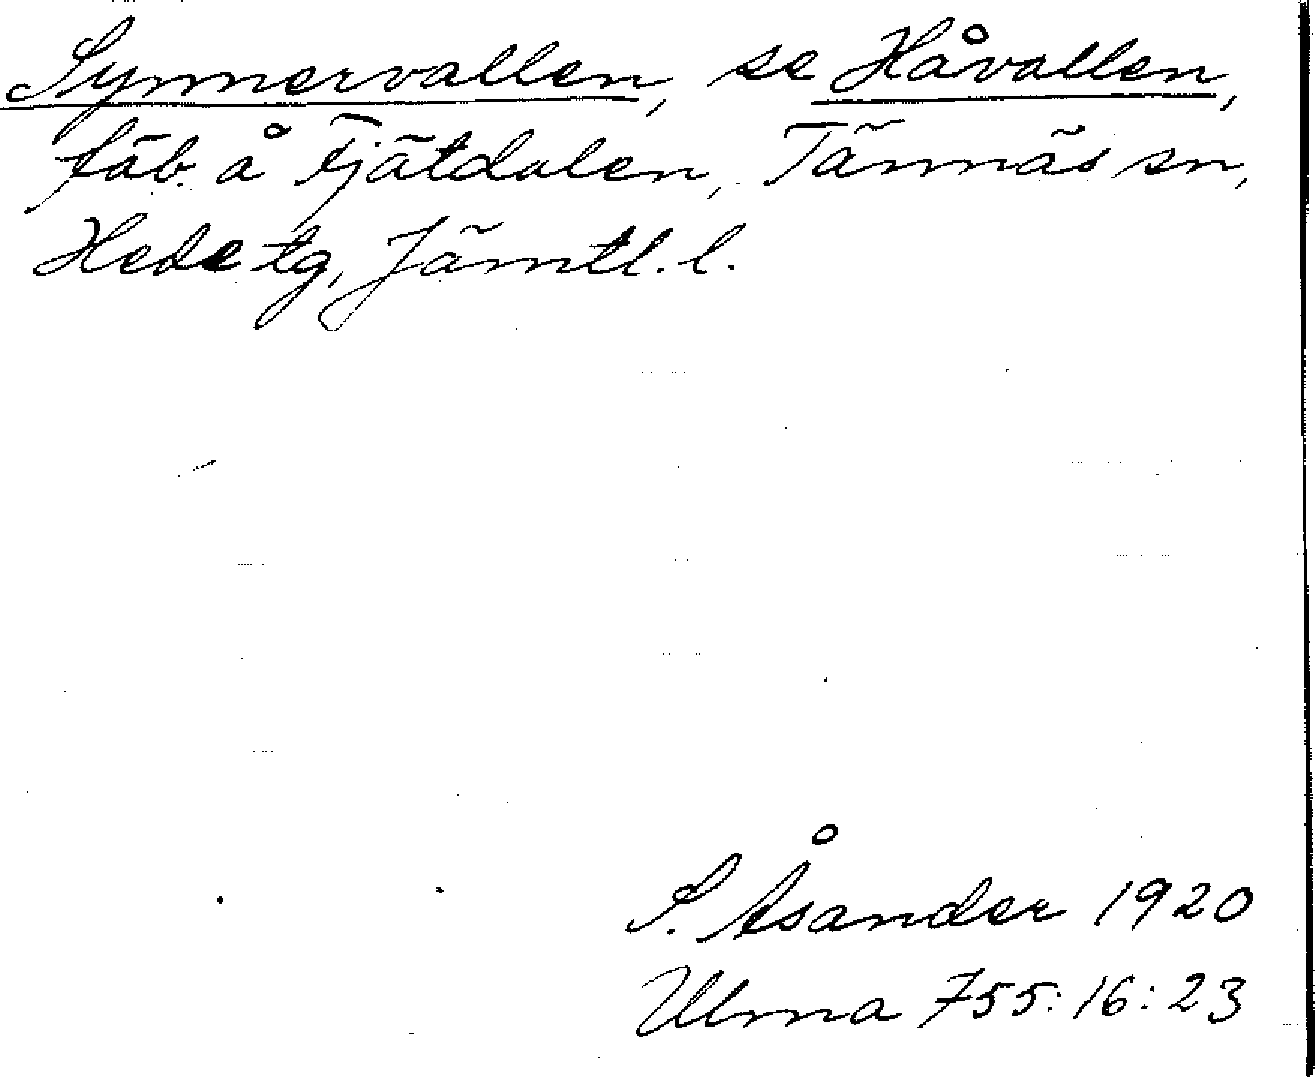 Synnervallen, se Håvallen,
fäb. å Fjätdalen, Tännäs sn,
Hede tg, Jämtl. l.
S. Åsander 1920
Ulma 755:16:23